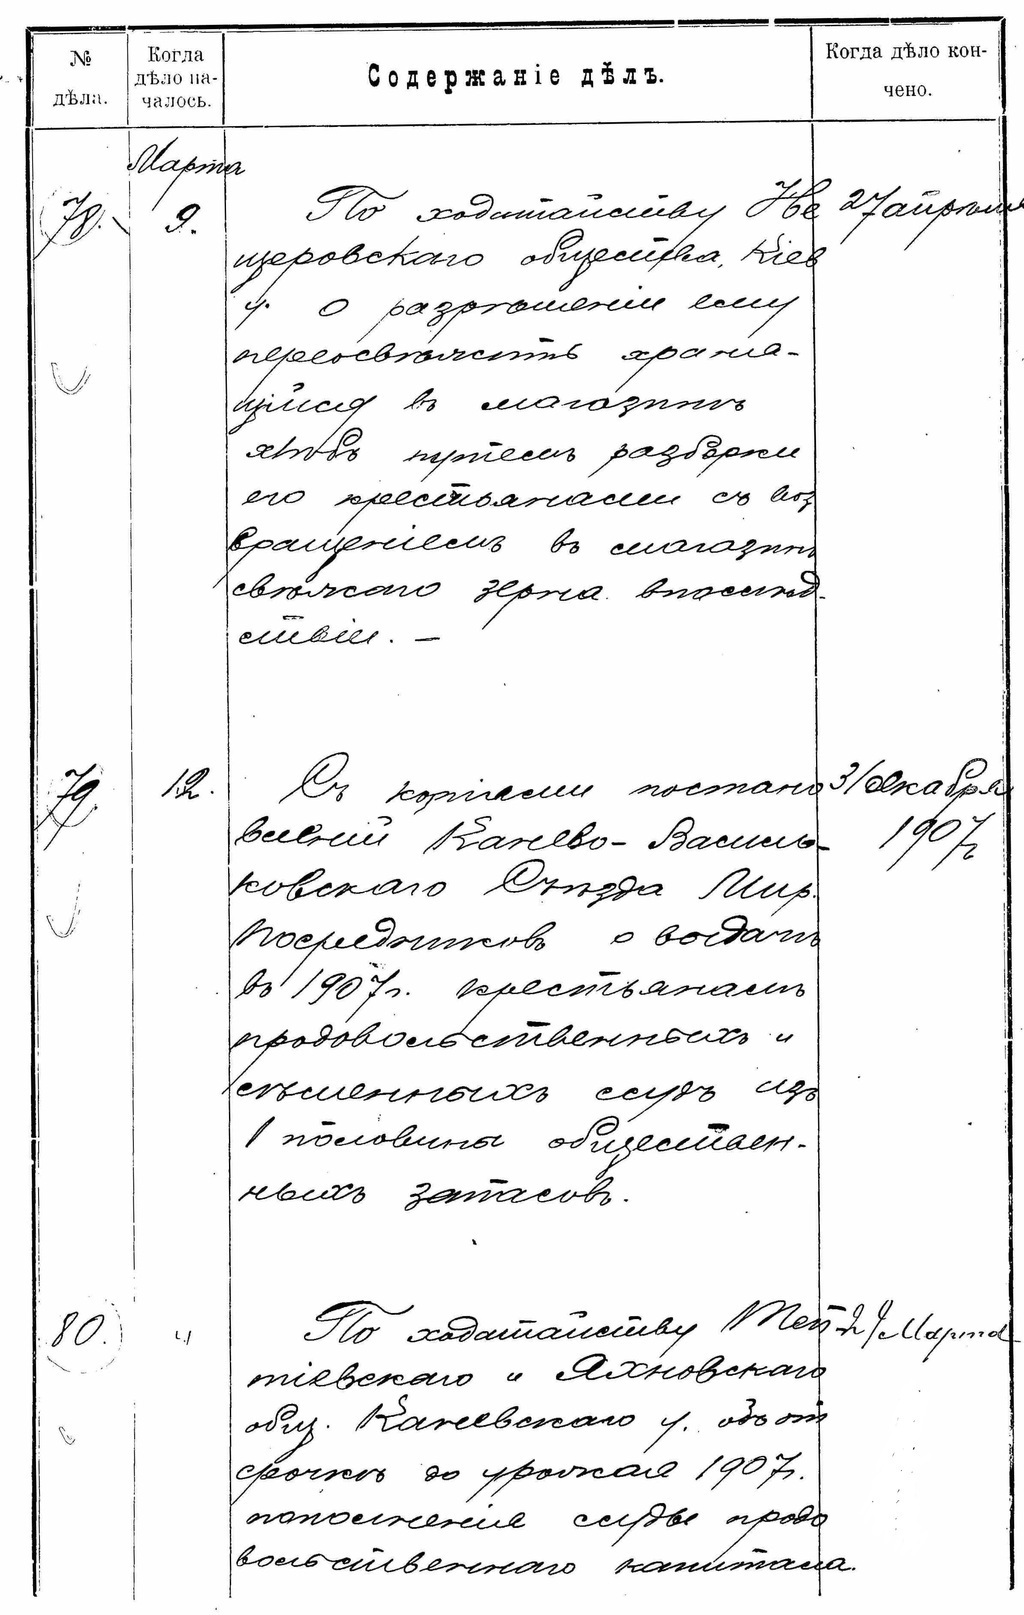 № дѣла.
Когда дѣло началось.
Содержаніе дѣлъ.
Когда дѣло кончено.
Марта
78. 9. По ходатайству Не 27 апрѣля
щеровскаго общества, Кіев
у. о разрѣшеніи ему
переосвѣжить храня-
щійся въ магазинѣ
хлѣбъ путемъ разборки
его крестьянами съ воз
вращеніемъ въ магазинъ
свѣжаго зерна впослѣд-
ствіи. —
79. 12. Съ копіями постано 31 декабря
вленій Канево-Василь- 1907 г.
ковскаго Съѣзда Мир.
Посредниковъ о выдачѣ
въ 1907 г. крестьянамъ
продовольственныхъ и
сѣменныхъ ссудъ изъ
1 половины обществен-
ныхъ запасовъ.
80. " По ходатайству Теп 29 Марта
тіевскаго и Яхновскаго
общ. Каневскаго у. объ от
срочкѣ до урожая 1907 г.
пополненія ссуды продо
вольственнаго капитала.